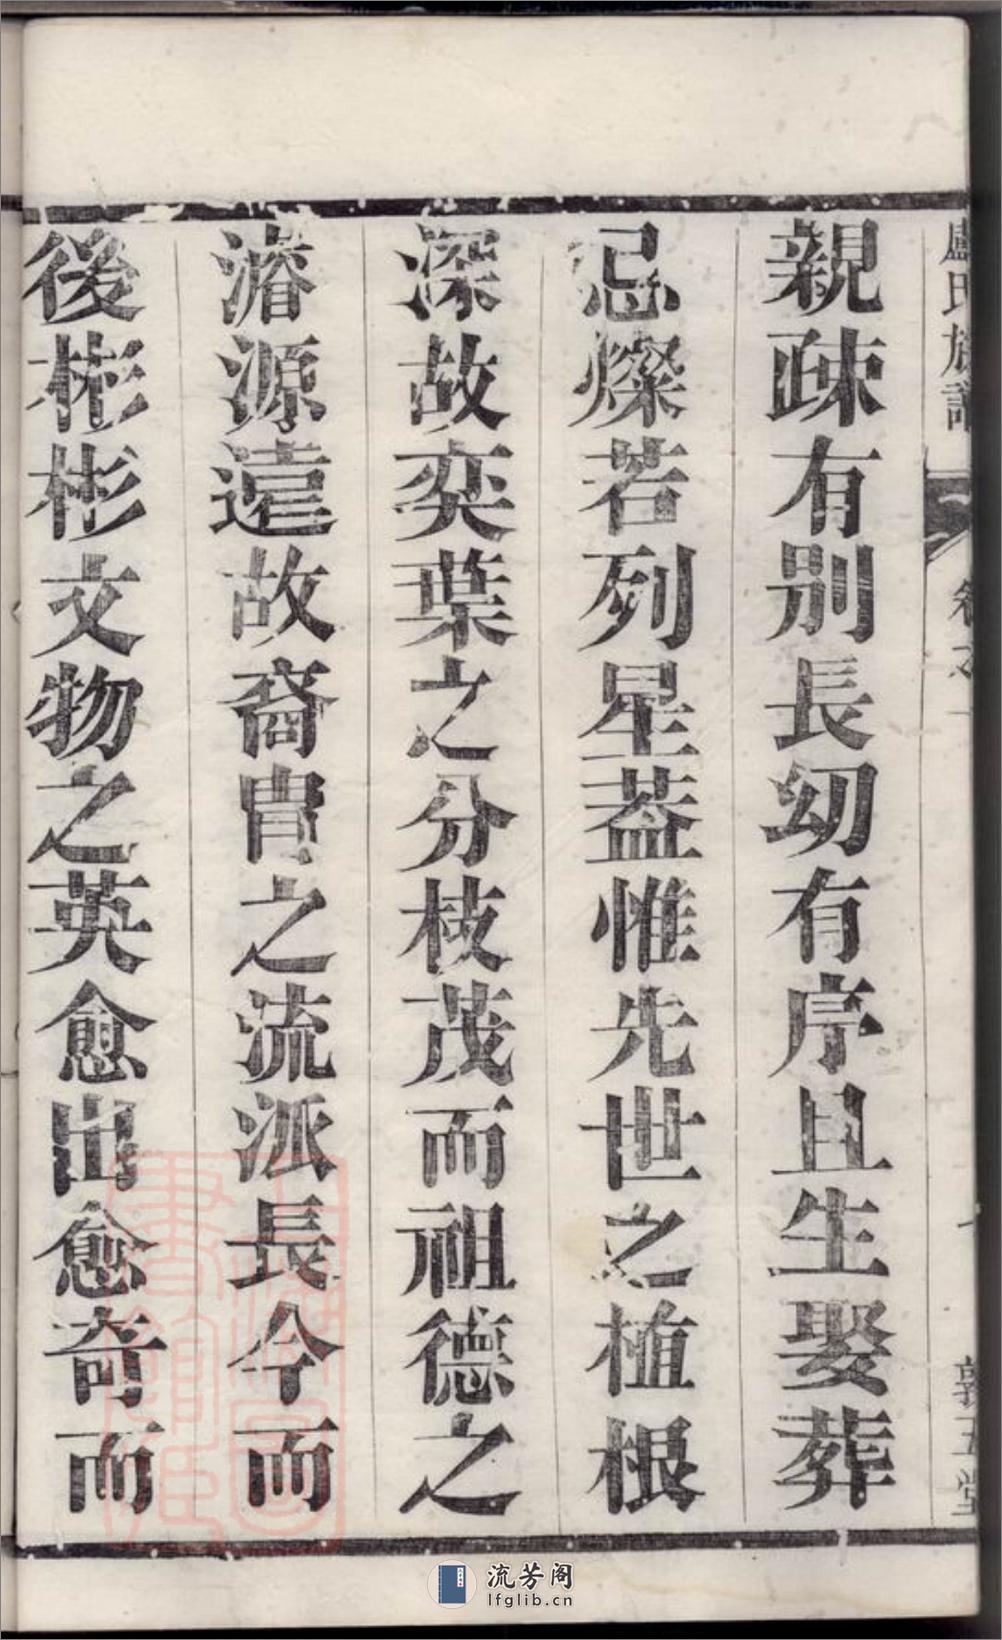 盧氏族譜
卷之一
敦五堂
親疎有別長幼有序且生娶葬
忌燦若列星葢惟先世之植根
深故奕葉之分枝茂而祖德之
濬源遠故裔冑之流派長今而
後彬彬文物之英愈出愈奇而
流芳阁
lfglib.cn